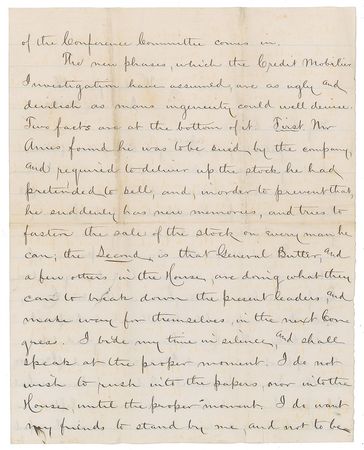 of the Conference Committee comes in.
The new phases, which the Credit Mobilier
Investigation have assumed, are as ugly and
devilish as mans ingenuity could well devise.
Two facts are at the bottom of it. First Mr
Ames found he was to be sued by the company,
and required to deliver up the stock he had
pretended to sell, and, in order to prevent that,
he suddenly has new memories, and tries to
fasten the sale of the stock on every man he
can; the Second, is that General Butler, and
a few others, in the House, are doing what they
can to break down the present leaders and
make way for themselves, in the next Con
gress. I bide my time in silence, and shall
speak at the proper moment. I do not
wish to rush into the papers, or into the
House, until the proper moment. I do want
my friends to stand by me, and not to be